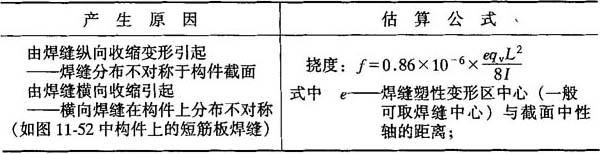 产生原因
估算公式
由焊缝纵向收缩变形引起
——焊缝分布不对称于构件截面
由焊缝横向收缩引起
——横向焊缝在构件上分布不对称
(如图 11-52 中构件上的短筋板焊缝)
挠度：f=0.86×10⁻⁶×eqᵥL²/8I
式中 e——焊缝塑性变形区中心（一般
可取焊缝中心）与截面中性
轴的距离；